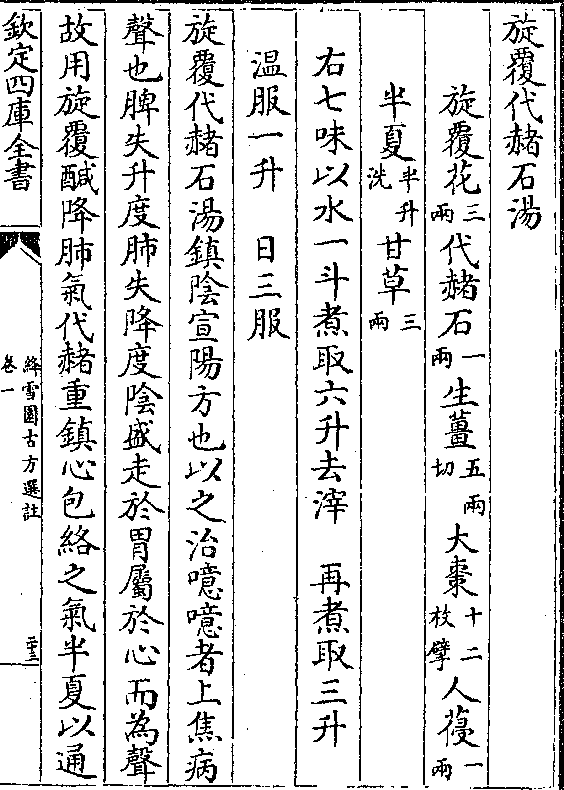 旋覆代赭石湯
旋覆花三兩代赭石一兩生薑五兩切大棗十二枚擘人葠一兩
半夏半升洗甘草三兩
右七味以水一斗煮取六升去滓 再煮取三升
温服一升 日三服
旋覆代赭石湯鎮陰宣陽方也以之治噫噫者上焦病
聲也脾失升度肺失降度陰盛走於胃屬於心而為聲
故用旋覆醎降肺氣代赭重鎮心包絡之氣半夏以通
欽定四庫全書
絳雪園古方選註
卷一
二十三